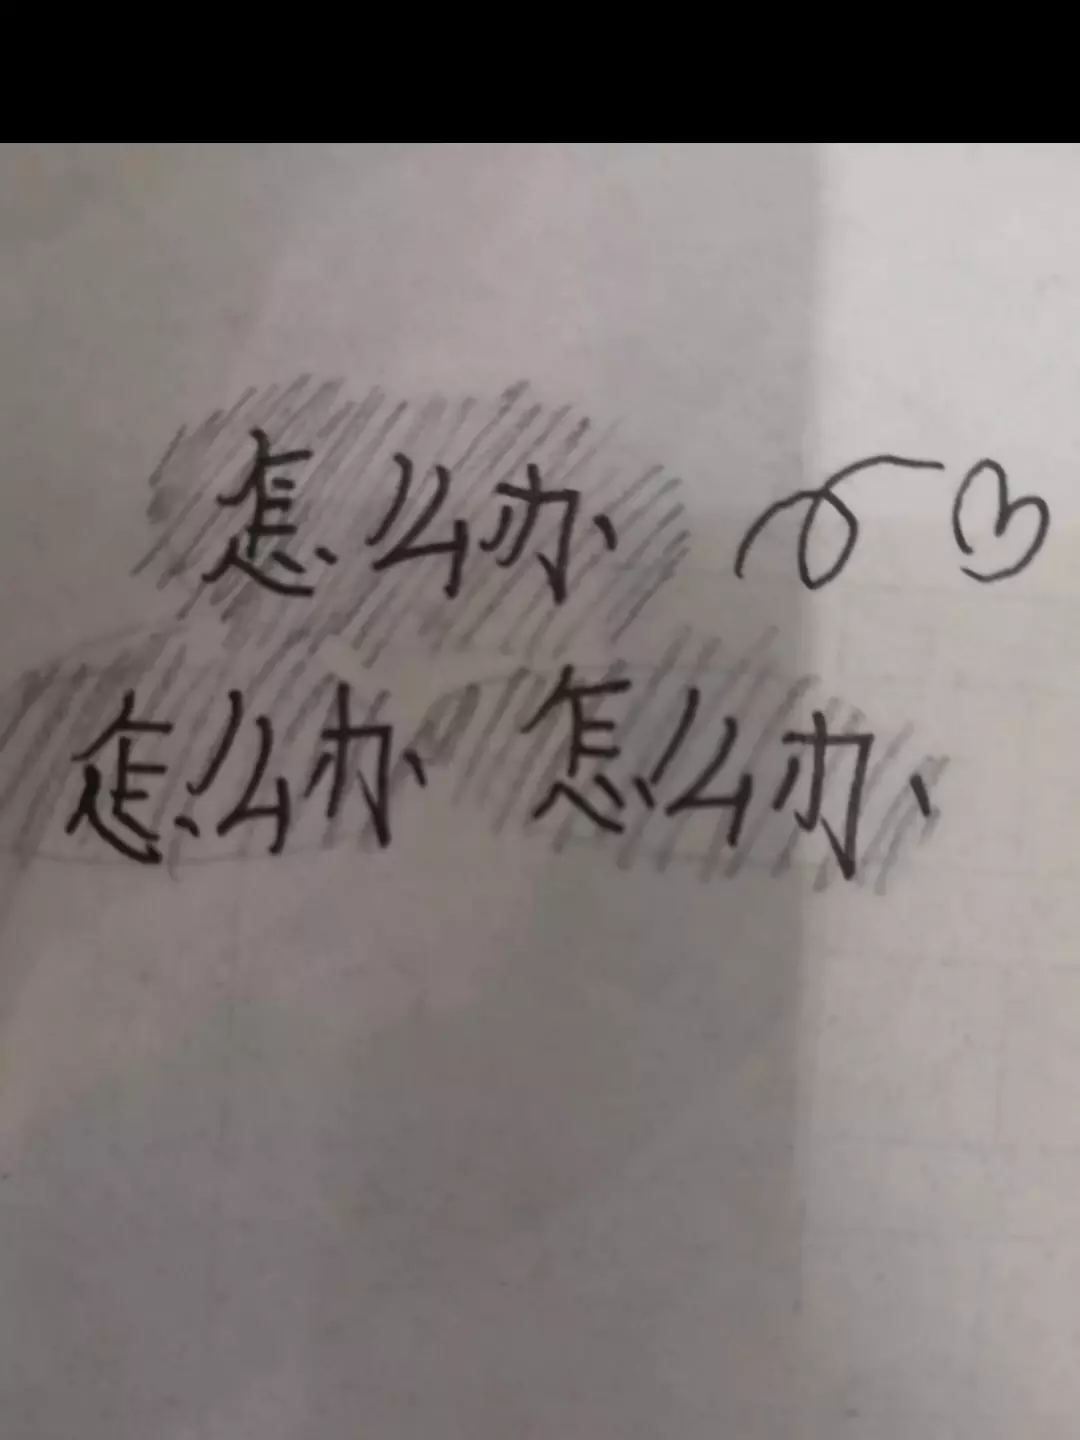 怎么办
怎么办 怎么办